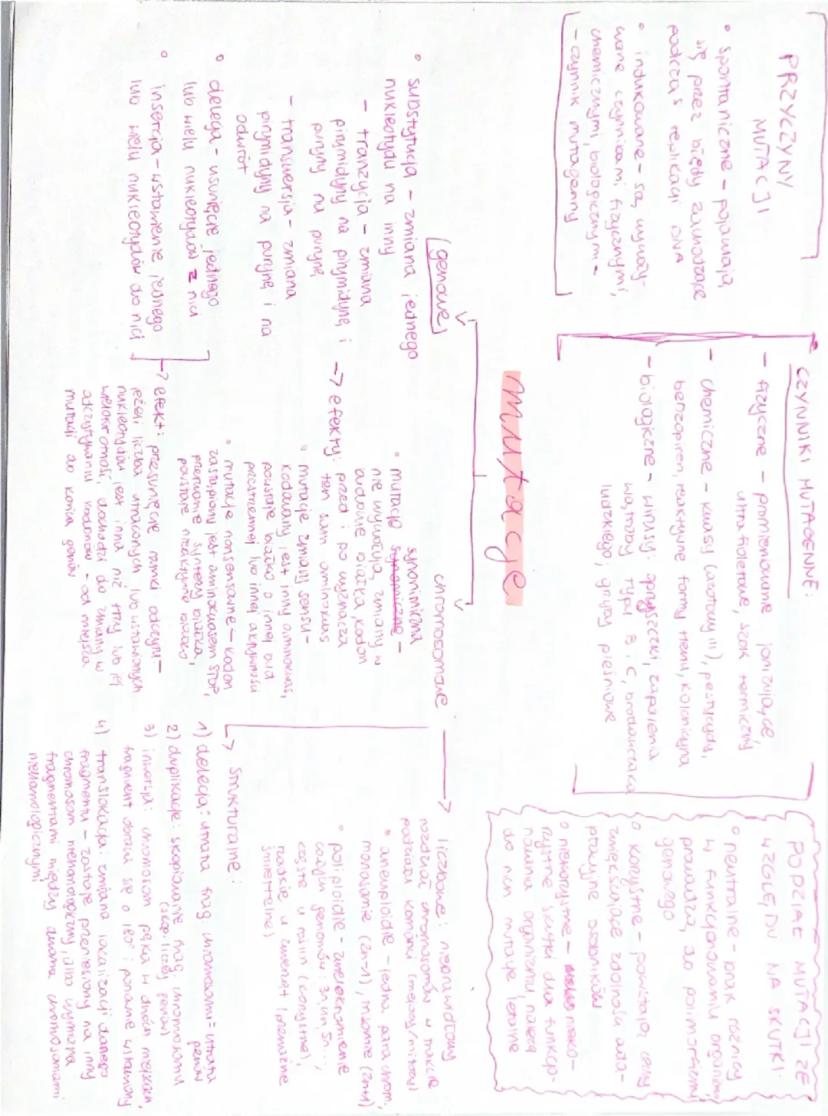 PRZYCZYNY
MUTACJI
• spontaniczne - pojawiają
się przez błędy zachodzące
podczas replikacji DNA
• indukowane - są wywoły-
wane czynnikami fizycznymi,
chemicznymi, biologicznymi -
- czynnik mutagenny
CZYNNIKI MUTAGENNE:
- fizyczne - promieniowanie jonizujące,
ultrafioletowe, szok termiczny
- chemiczne - kwasy (azotowy III), pestycydy,
benzopiren, reaktywne formy tlenu, kolchicyna
- biologiczne - wirusy opryszczki, zapalenia
wątroby typu B, C, brodawczaka
ludzkiego; grzyby pleśniowe
PODZIAŁ MUTACJI ZE
WZGLĘDU NA SKUTKI:
• neutralne - brak różnicy
w funkcjonowaniu organizmu
prowadzą do polimorfizmu
genowego
• korzystne - powstają geny
zwiększające zdolności
przeżycie osobników
• niekorzystne - nieko-
rzystne skutki dla funkcjo-
nowania organizmu, należą
do nich mutacje letalne
mutacje
genowe
chromosomowe
• substytucja - zmiana jednego
nukleotydu na inny
- tranzycja - zmiana
pirymidyny na pirymidynę i
puryny na purynę
- transwersja - zmiana
pirymidyny na purynę i na
odwrót
• delecja - usunięcie jednego
lub wielu nukleotydów z nici
• insercja - wstawienie jednego
lub wielu nukleotydów do nici
→ efekty:
• mutacje synonimiczna
nie wywołują zmiany w
budowie białka kodon
przed i po wyznacza
ten sam aminokwas
• mutacje zmiany sensu -
kodowany jest inny aminokwas,
powstaje białko o innej
przestrzennej lub innej aktywności
• mutacje nonsensowne - kodon
zastąpiony jest kodonem STOP,
przerwanie syntezy białka,
powstaje nieaktywne białko
→ efekt: przesunięcie ramki odczytu -
jeżeli liczba utraconych lub wstawionych
nukleotydów jest inna niż trzy lub jej
wielokrotność, dochodzi do zmiany w
odczytywaniu kodonów - od miejsca
mutacji do końca genów
→ liczbowe: nieprawidłowy
rozdział chromosomów w trakcie
podziału komórki (mejozy/mitozy)
• aneuploidie - jedna para chrom.
monosomie (2n-1), trisomie (2n+1)
• poliploidie - zwielokrotnienie
całych genomów 3n, 4n, 5n...,
częste u roślin (korzystne),
rzadkie u zwierząt (przeważnie
śmiertelne)
→ strukturalne:
1) delecja: utrata frag. chromosomu = utrata
genów
2) duplikacje: podwojenie frag. chromosomu
(kopii liczby genów)
3) inwersja: chromosom pęka w dwóch miejscach,
fragment obraca się o 180° i ponownie wstawiony
4) translokacja: zmiana lokalizacji danego
fragmentu - zostaje przeniesiony na inny
chromosom niehomologiczny, albo wymiana
fragmentami między dwoma chromosomami
niehomologicznymi